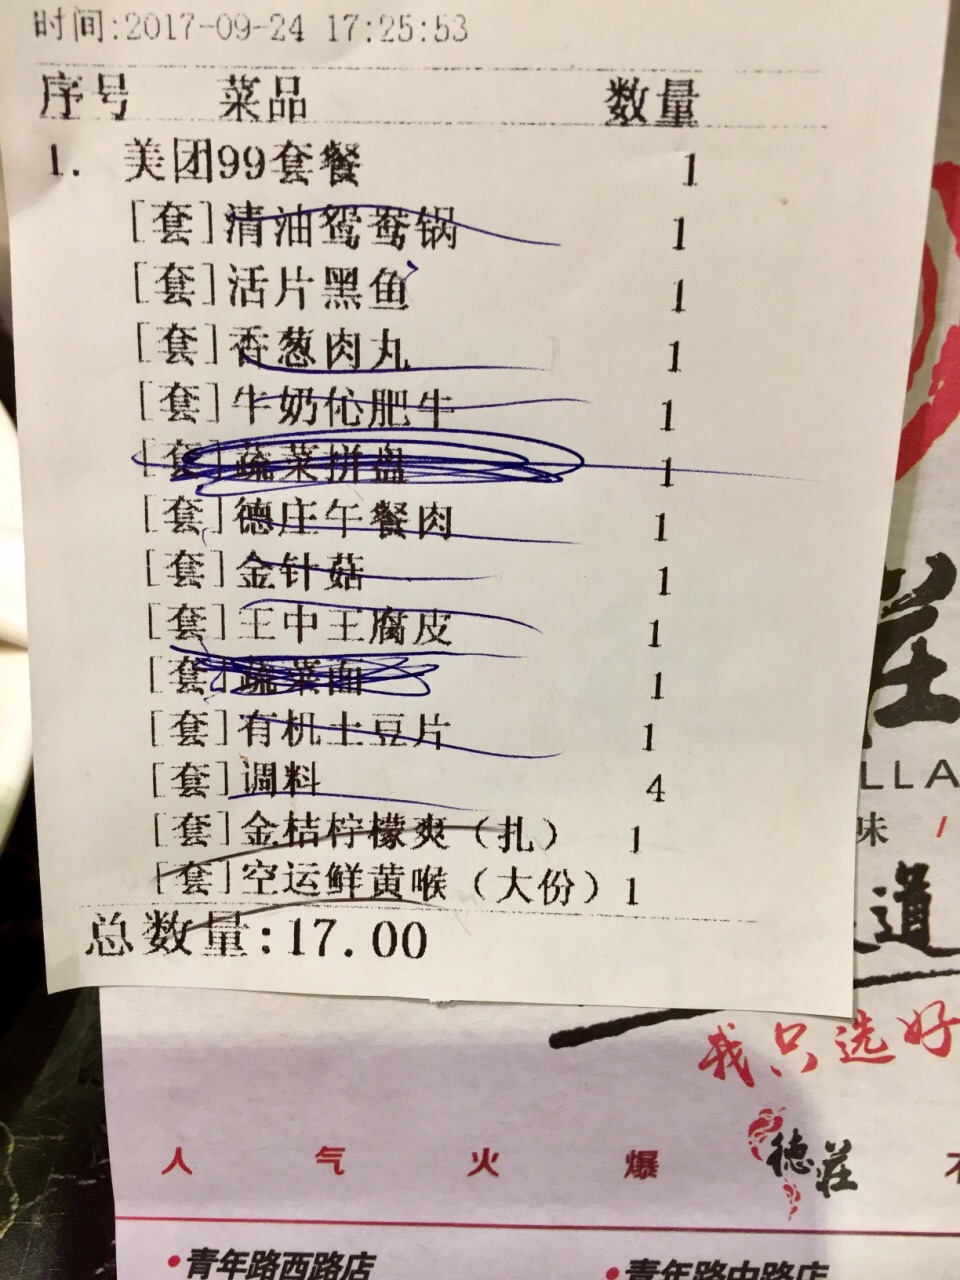 时间:2017-09-24 17:25:53
序号 菜品 数量
1. 美团99套餐 1
[套]清油鸳鸯锅 1
[套]活片黑鱼 1
[套]香葱肉丸 1
[套]牛奶伈肥牛 1
[套]蔬菜拼盘 1
[套]德庄午餐肉 1
[套]金针菇 1
[套]王中王腐皮 1
[套]蔬菜面 1
[套]有机土豆片 1
[套]调料 4
[套]金桔柠檬爽（扎） 1
[套]空运鲜黄喉（大份） 1
总数量:17.00
庄
LLA
味
道
我只选好
人气火爆
德莊
•青年路西路店
•青年路中路店